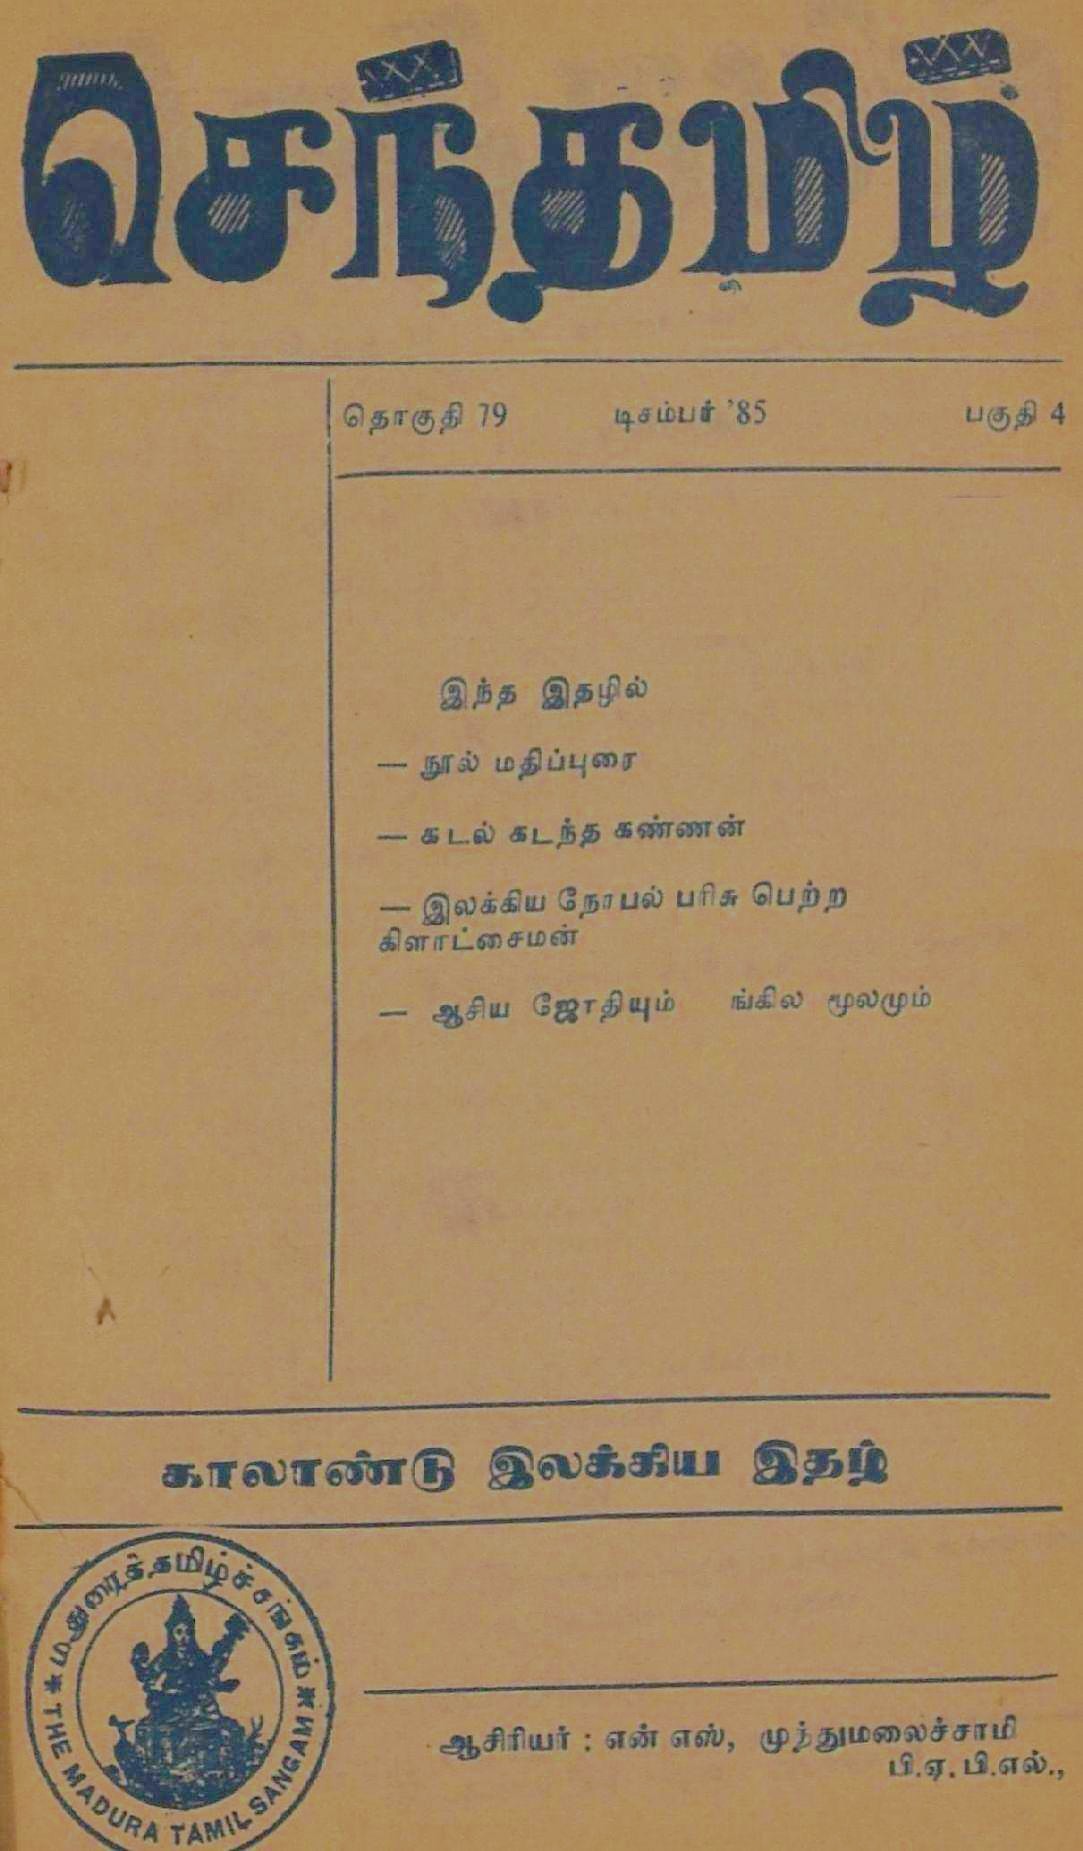 செந்தமிழ்
தொகுதி 79 டிசம்பர் '85 பகுதி 4
இந்த இதழில்
— நூல் மதிப்புரை
— கடல் கடந்த கண்ணன்
— இலக்கிய நோபல் பரிசு பெற்ற
கிளாட்சைமன்
— ஆசிய ஜோதியும் ங்கில மூலமும்
காலாண்டு இலக்கிய இதழ்
மதுரைத்தமிழ்ச்சங்கம்
THE MADURA TAMIL SANGAM
ஆசிரியர் : என் எஸ், முத்துமலைச்சாமி
பி.ஏ. பி.எல்.,